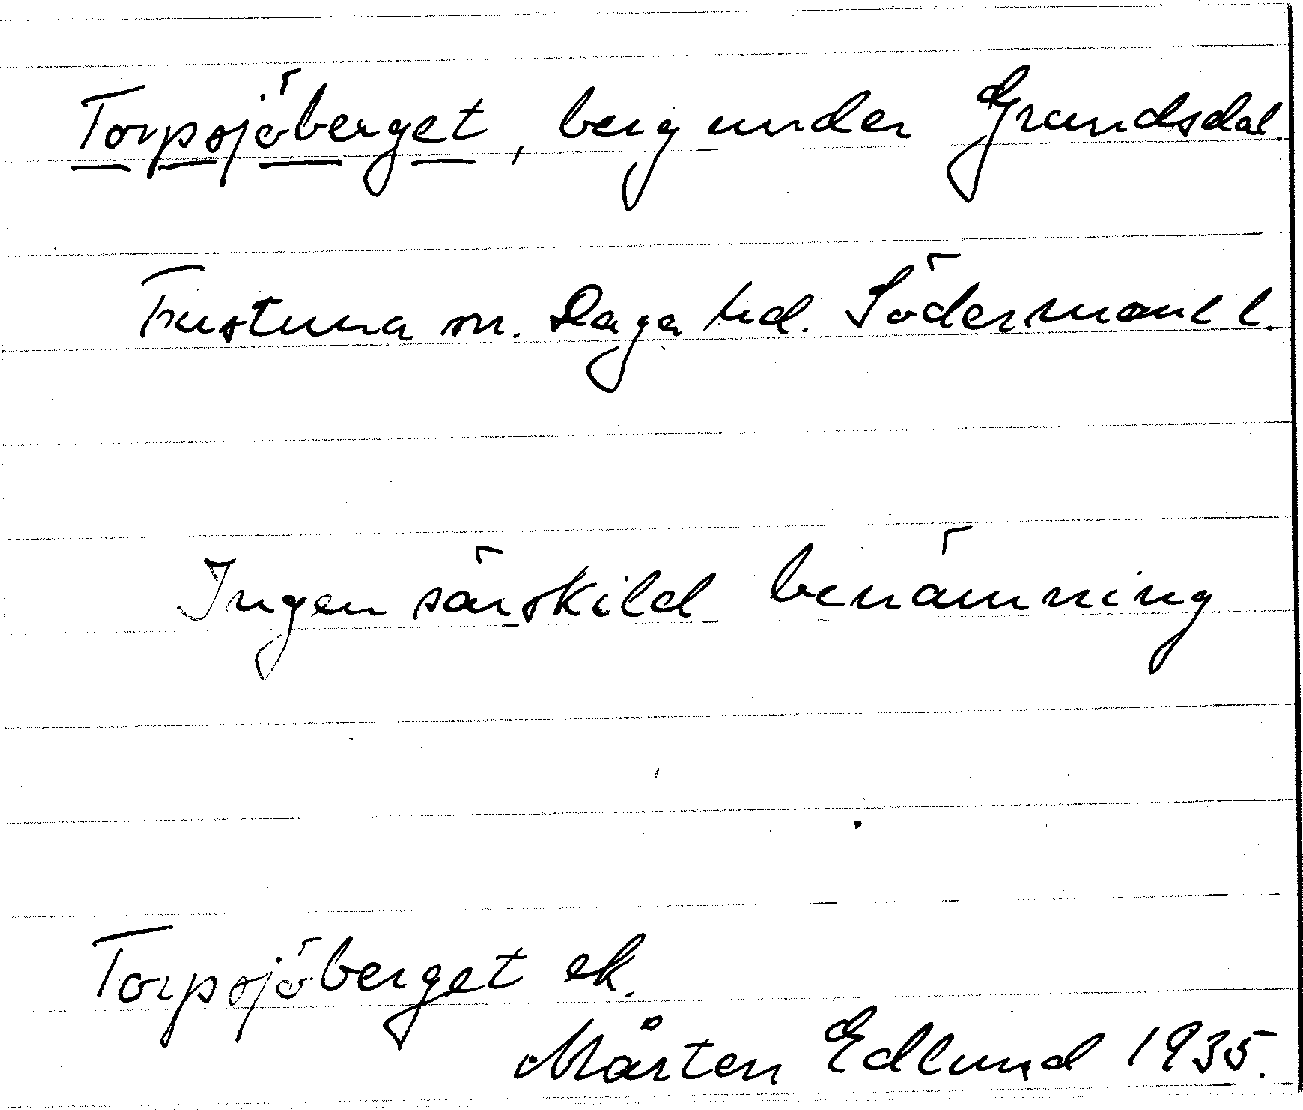 Torpsjöberget, berg under Grundsdal.
Frustuna sn. Daga hd. Södermanl l.
Ingen särskild benämning
Torpsjöberget ek.
Mårten Edlund 1935.